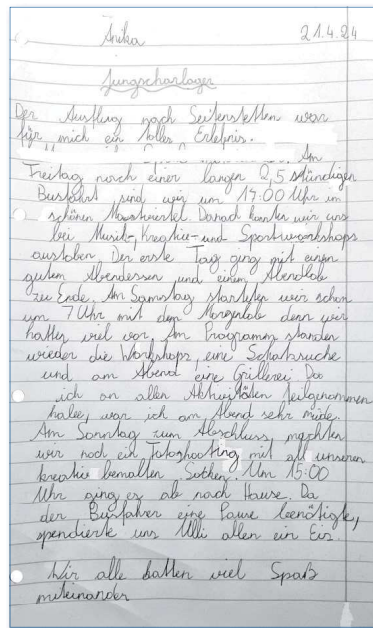 Anika 21.4.24
Jungscharlager
Der Ausflug nach Seitenstetten war
für mich ein tolles Erlebnis.
Am
Freitag nach einer langen 2,5 stündigen
Busfahrt sind wir um 17:00 Uhr im
schönen Danach konnten wir uns
bei Musik-, Kreativ- und Sportworkshops
austoben. Der erste Tag ging mit einem
gutem Abendessen und einem Abendlob
zu Ende. Am Samstag starteten wir schon
um 7 Uhr mit dem Morgenlob denn wir
hatten viel vor. Am Programm standen
wieder die Workshops, eine Schatzsuche
und am Abend eine Grillerei. Da
ich an allen Aktivitäten teilgenommen
habe, war ich am Abend sehr müde.
Am Sonntag zum Abschluss, machten
wir noch ein Fotoshooting mit all unseren
kreativ bemalten Um 15:00
Uhr ging es ab nach Hause. Da
der Busfahrer eine Pause benötigte,
spendierte uns Ulli allen ein Eis.
Wir alle hatten viel Spaß
miteinander